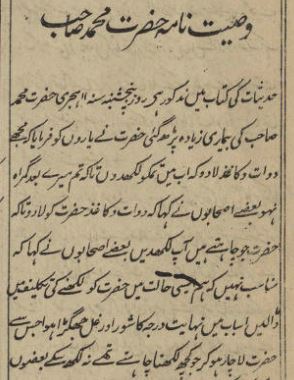 وصیت نامہ حضرت محمد صاحب
حدیثات کی کتاب میں مذکور ہی روز پنجشنبہ سنہ ۱۱ ہجری حضرت محمد
صاحب کی بیماری زیادہ بڑھ گئی حضرت نے یاروں کو فرمایا کہ مجھے
دوات و کاغذ لا دو کہ اب میں تمکو لکھدوں تاکہ تم میرے بعد گمراہ
نہو بعضے اصحابوں نے کہا کہ دوات و کاغذ حضرت کو لا دو تاکہ
حضرت جو چاہتے ہیں آپ لکھدیں بعضے اصحابوں نے کہا کہ
مناسب نہیں کہ ہم ایسی حالت میں حضرت کو لکھنے کی تکلیف میں
ڈالیں اسباب میں نہایت درجہ کا شور اور غل جھگڑا ہوا جس سے
حضرت لاچار ہو کر جو کچھ لکھنا چاہتے تھے نہ لکھ سکے بعضوں